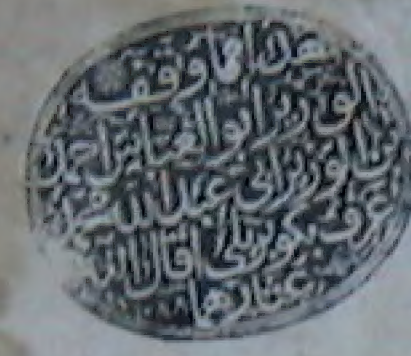 هذا مما وقفه
الوزير ابو العباس احمد
بن الوزير ابي عبد الله محمد
عرف بكوبريلى اقال الله
عثارهما